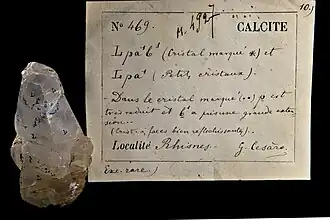 10.
Nº 469. M. 4927 CALCITE
L p a¹ b¹ (Cristal marqué *) et
L p a¹ (Petits cristaux).
Dans le cristal marqué (..) p est
très réduit et b¹ a pris une grande exten
sion..
(Crist. à faces bien réfléchissantes).
Localité Rhisnes. G. Cesàro.
Exc. rare.)